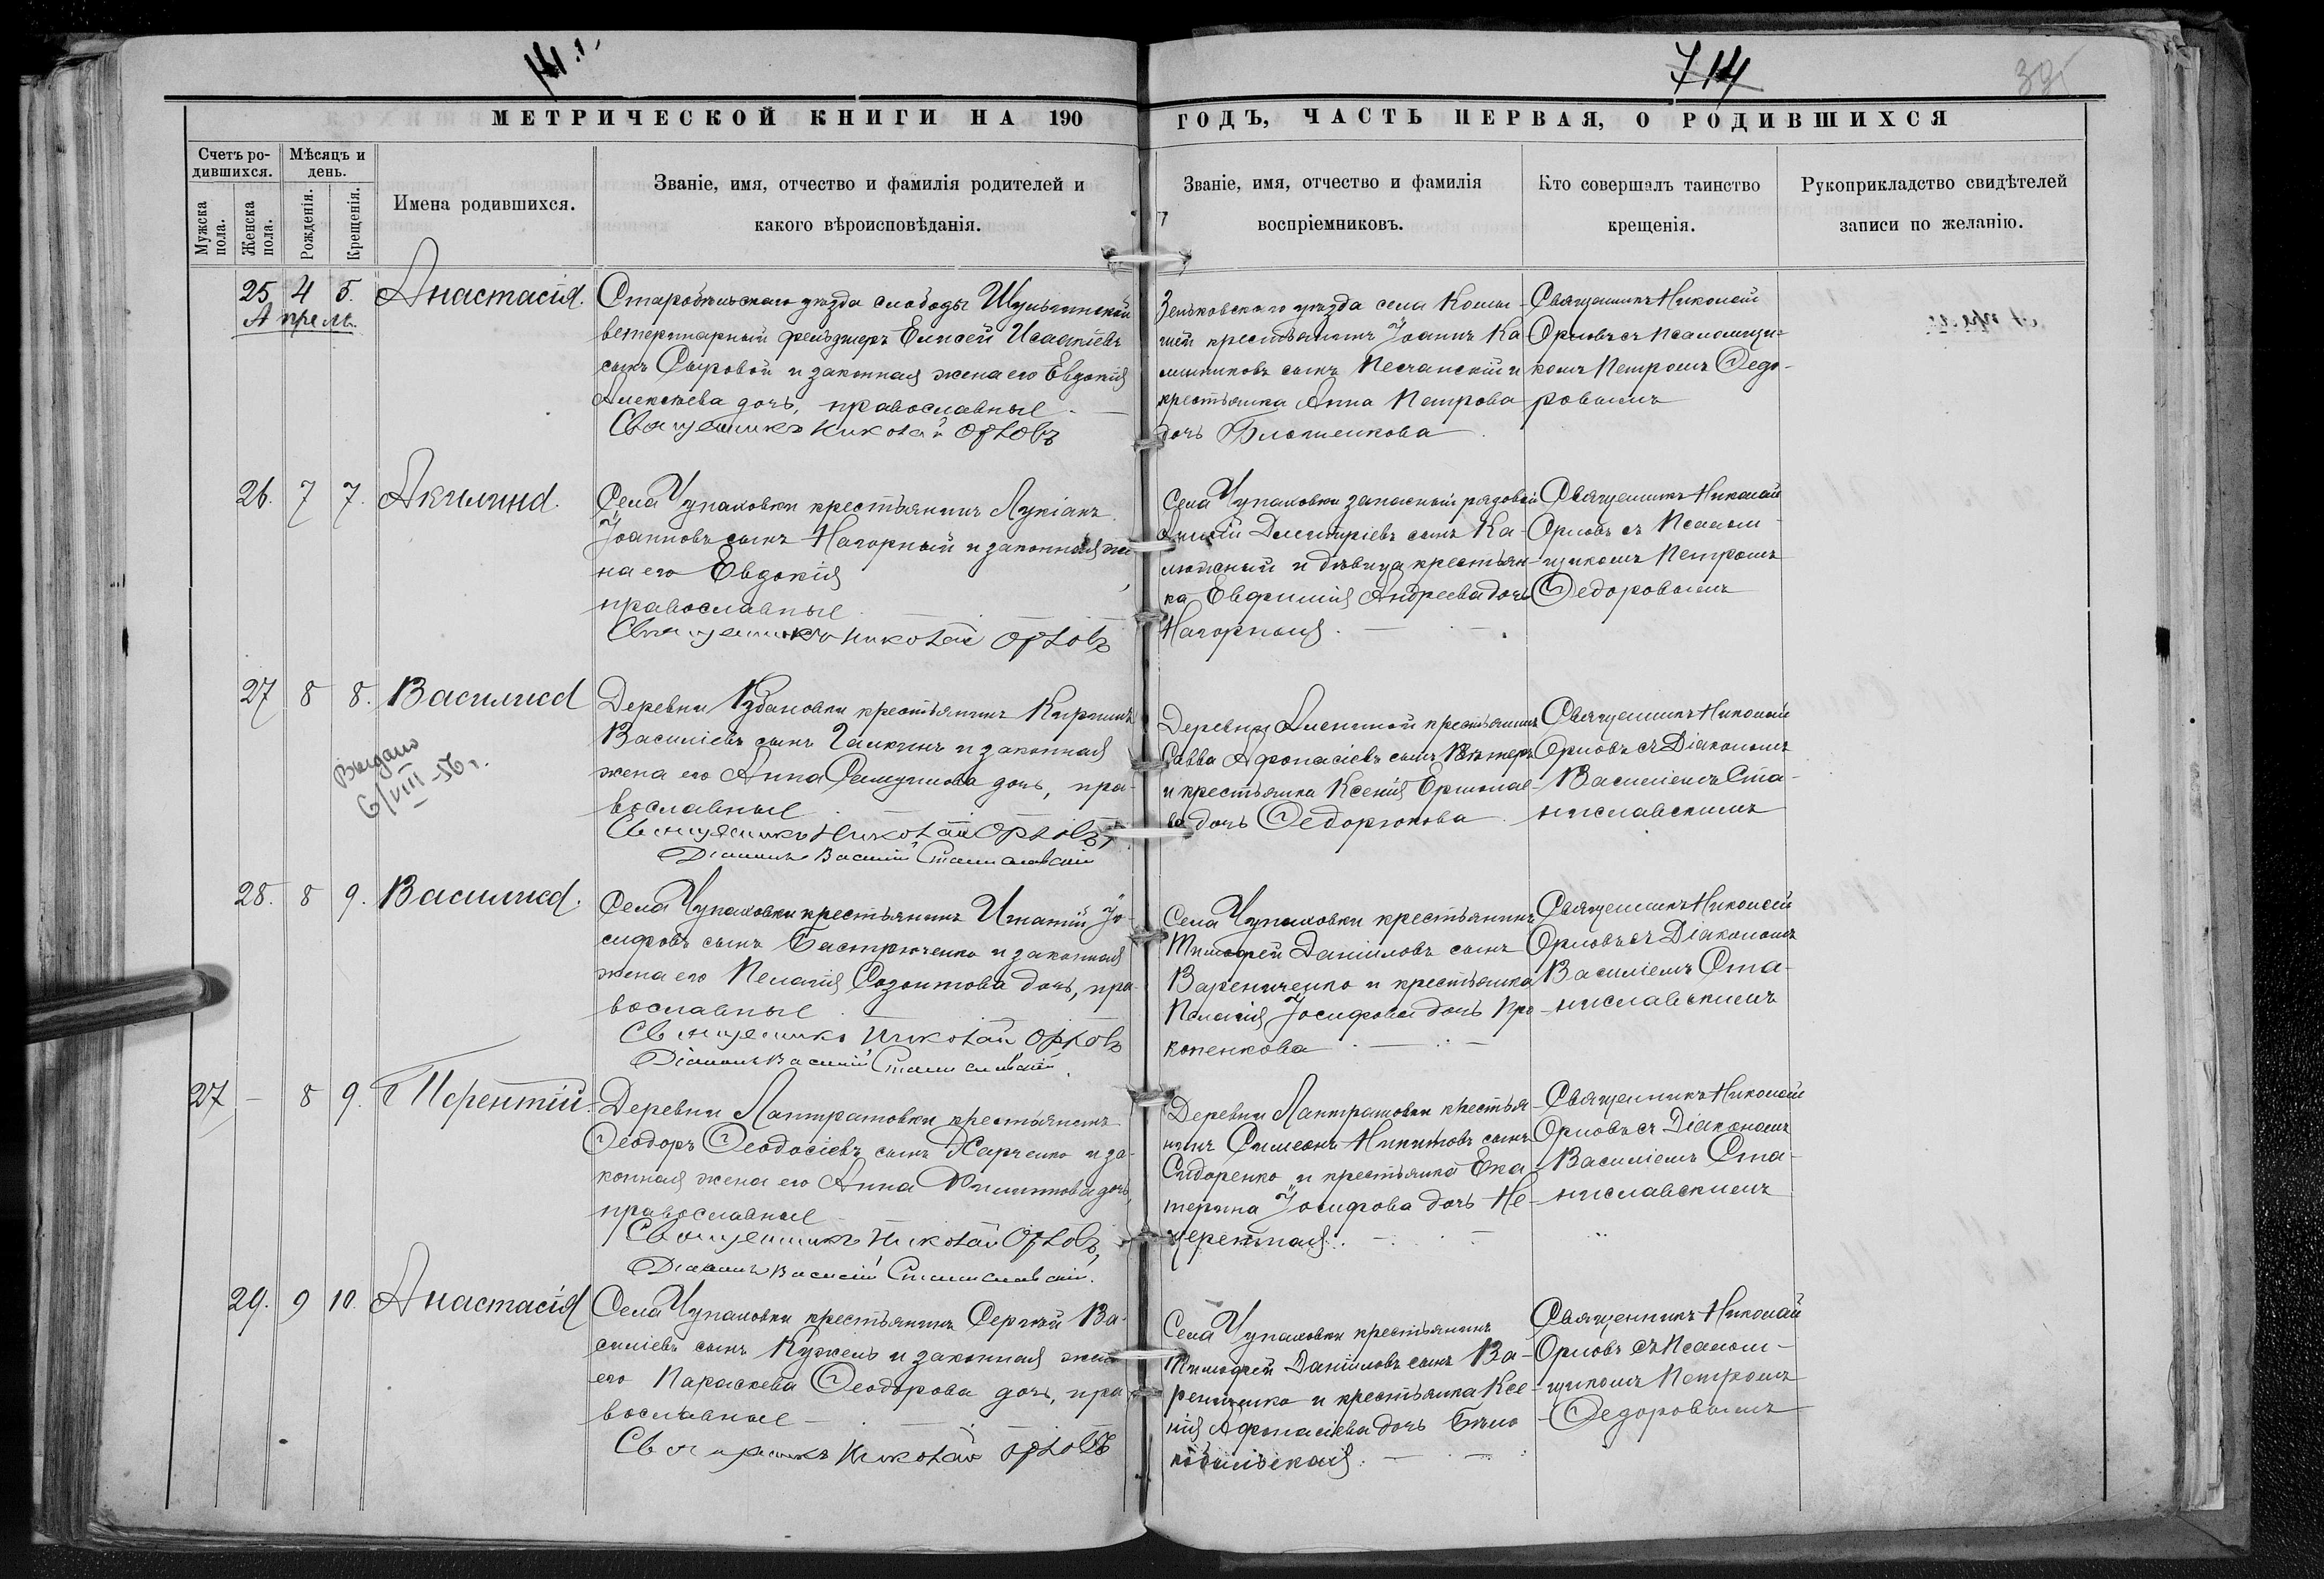 714
39
МЕТРИЧЕСКОЙ КНИГИ НА 190 ГОДЪ, ЧАСТЬ ПЕРВАЯ, О РОДИВШИХСЯ
Счетъ ро-
дившихся.
Мѣсяцъ и
день.
Мужска
пола.
Женска
пола.
Рожденія.
Крещенія.
Имена родившихся.
Званіе, имя, отчество и фамилія родителей и
какого вѣроисповѣданія.
Званіе, имя, отчество и фамилія
воспріемниковъ.
Кто совершалъ таинство
крещенія.
Рукоприкладство свидѣтелей
записи по желанію.
25 4 5. Анастасія.
Апрель.
Старобѣльскаго уѣзда слободы Шульгинской
ветеринарный фельдшеръ Елисей Исаакіевъ
сынъ Сыровой и законная жена его Евдокія
Алексѣева дочь, православные
Священникъ Николай Орловъ
Зеньковскаго уѣзда села
крестьянинъ Іоаннъ Ка-
линниковъ сынъ Песчанскій и
крестьянка Анна Петрова
дочь
Священникъ Николай
Орловъ съ псаломщи-
комъ Петромъ Ѳедо-
ровымъ
26. 7 7. Акилина.
Села Чупаховки крестьянинъ Лукіанъ
Іоанновъ сынъ Нагорный и законная же
на его Евдокія
православные
Священникъ Николай Орловъ
Села Чупаховки запасный рядовой
Димитріевъ сынъ Ка-
люжный и дѣвица крестьян-
ка Евфимія Андреева дочь
Нагорная.
Священникъ Николай
Орловъ съ Псалом-
щикомъ Петромъ
Ѳедоровымъ
27 8 8. Василиса
Выдано
6/VIII-56 г.
Деревни крестьянинъ Кириллъ
Василіевъ сынъ Галкинъ и законная
жена его Анна дочь, пра-
вославные
Священникъ Николай Орловъ,
Діаконъ Василій Станиславскій
Деревни крестьянинъ
Савва Афонасіевъ сынъ
и крестьянка Ксенія Ермолае-
ва дочь Ѳедорюкова
Священникъ Николай
Орловъ съ Діакономъ
Василіемъ Ста-
ниславскимъ
28. 8 9. Василиса.
Села Чупаховки крестьянинъ Игнатій Іо-
сифовъ сынъ Бастрюченко и законная
жена его Пелагія Созонтова дочь, пра-
вославные
Священникъ Николай Орловъ
Діаконъ Василій Станиславскій.
Села Чупаховки крестьянинъ
Тимофей Даніиловъ сынъ
Варениченко и крестьянка
Пелагія Іосифова дочь Про-
копенкова
Священникъ Николай
Орловъ съ Діакономъ
Василіемъ Ста-
ниславскимъ
27 - 8 9. Терентій.
Деревни Лантратовки крестьянинъ
Ѳеодоръ Ѳеодосіевъ сынъ Харченко и за-
конная жена его Анна Филиппова дочь,
православные
Священникъ Николай Орловъ,
Діаконъ Василій Станиславскій.
Деревни Лантратовки крестья-
нинъ Симеонъ Никитовъ сынъ
Сидоренко и крестьянка Ека-
терина Іосифова дочь Не-
Священникъ Николай
Орловъ съ Діакономъ
Василіемъ Ста-
ниславскимъ
29. 9 10. Анастасія
Села Чупаховки крестьянинъ Сергѣй Ва-
силіевъ сынъ Кужель и законная жена
его Параскева Ѳеодорова дочь, пра-
вославные
Священникъ Николай Орловъ
Села Чупаховки крестьянинъ
Тимофей Даніиловъ сынъ Ва-
рениченко и крестьянка Ксе-
нія Афонасіева дочь Бѣло-
кобыльская.
Священникъ Николай
Орловъ съ Псалом-
щикомъ Петромъ
Ѳедоровымъ